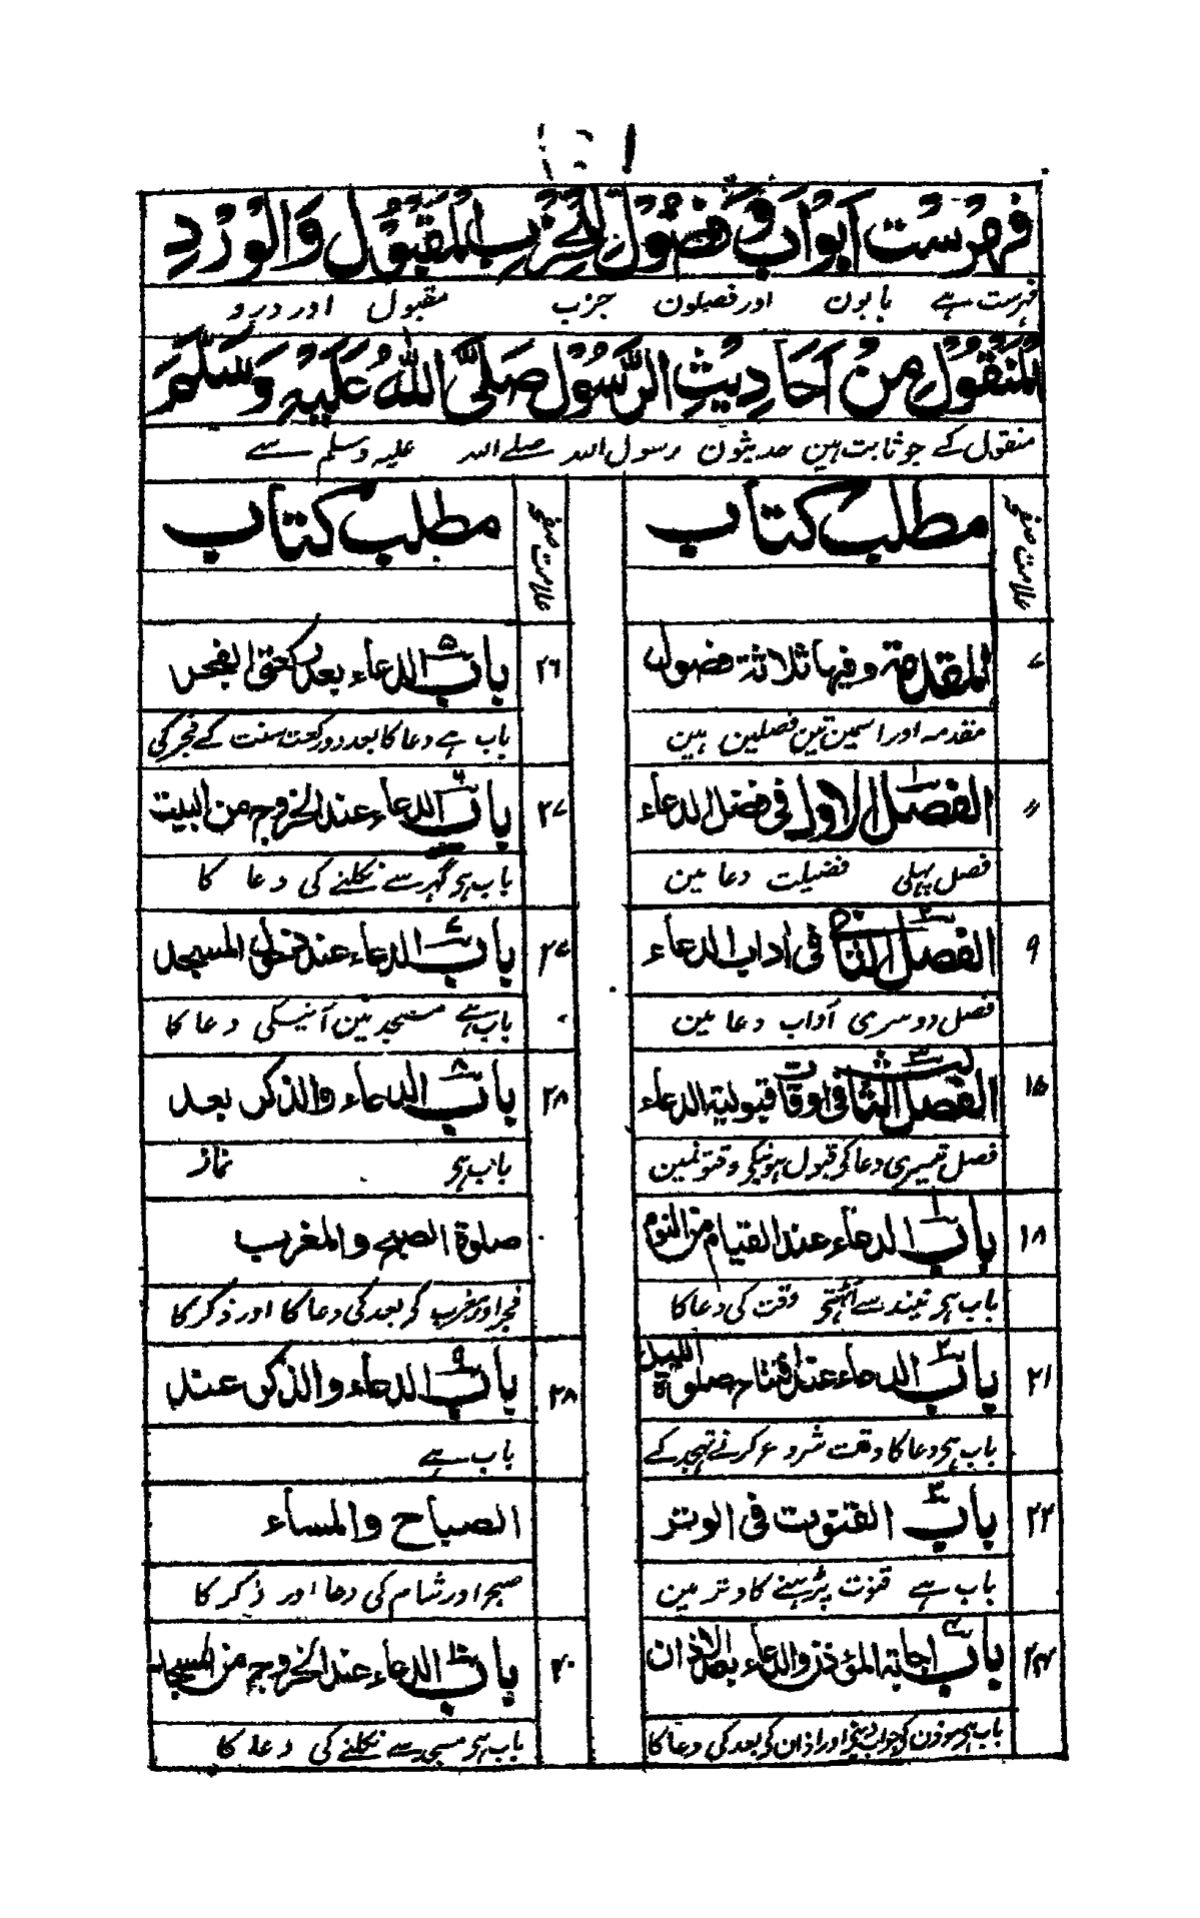 فِهْرِسْت اَبْوَاب وَ فُصُوْلُ الْحِزْبِ الْمَقْبُوْلِ وَالْوِرْدِ
فہرست ہے بابون اور فصلون حزب مقبول اور درو
الْمَنْقُوْلِ مِنْ اَحَادِيْثِ الرَّسُوْلِ صَلَّى اللّٰهُ عَلَيْهِ وَسَلَّمَ
منقول کے جو ثابت ہین حدیثون رسول اللہ صلے اللہ علیہ وسلم سے
علامت صفحہ
مطلب کتاب
۷
المقدمة وفيها ثلاثة فصول
مقدمہ اور اسمین تین فصلین ہین
〃
الفصل الاول في فضل الدعاء
فصل پہلی فضیلت دعا مین
۹
الفصل الثانی فی اداب الدعاء
فصل دوسری آداب دعا مین
۱۵
الفصل الثالث فی اوقات قبولیة الدعاء
فصل تیسری دعا کی قبول ہونیکی وقتونمین
۱۸
باب ۱ الدعاء عند القيام من النوم
باب ہی نیند سے اٹھتی وقت کی دعا کا
۲۱
باب ۲ الدعاء عند افتتاح صلوة الليل
باب ہی دعا کا وقت شروع کرنے تہجد کے
۲۲
باب ۳ القنوت فی الوتر
باب ہے قنوت پڑہنے کا وتر مین
۲۴
باب ۴ اجابة المؤذن والدعاء بعد الاذان
باب ہی موذن کی جواب دینی اور اذان کی بعد کی دعا کا
علامت صفحہ
مطلب کتاب
۲۶
باب ۵ الدعاء بعد ركعتی الفجر
باب ہے دعا کا بعد دو رکعت سنت کے فجر کی
۲۷
باب ۶ الدعاء عند الخروج من البيت
باب ہی گہر سے نکلنے کی دعا کا
۲۷
باب ۷ الدعاء عند دخول المسجد
باب ہے مسجد مین آنیکی دعا کا
۲۸
باب ۸ الدعاء والذكر بعد
باب ہی نماز
صلوة الصبح والمغرب
فجر اور مغرب کی بعد کی دعا کا اور ذکر کا
۲۸
باب ۹ الدعاء والذكر عند
باب ہے
الصباح والمساء
صبح اور شام کی دعا اور ذکر کا
۴۰
باب ۱۰ الدعاء عند الخروج من المسجد
باب ہی مسجد سے نکلنے کی دعا کا